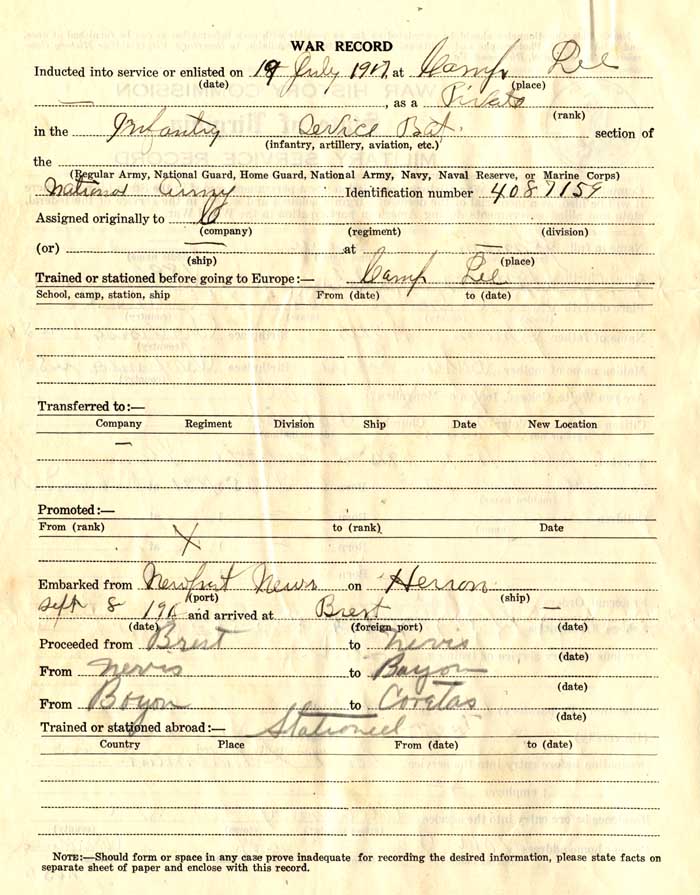 WAR RECORD
Inducted into service or enlisted on 19 July 1917 at Camp Lee
(date) (place)
— , as a Private
(rank)
in the Infantry Service Bat. section of
(infantry, artillery, aviation, etc.)
the
(Regular Army, National Guard, Home Guard, National Army, Navy, Naval Reserve, or Marine Corps)
National Army Identification number 4087159
Assigned originally to
(company) (regiment) (division)
(or) — at —
(ship) (place)
Trained or stationed before going to Europe:— Camp Lee
School, camp, station, ship From (date) to (date)
Transferred to:—
Company Regiment Division Ship Date New Location
—
Promoted:—
From (rank) to (rank) Date
X
Embarked from Newport News on Herron
(port) (ship)
Sept 8 191 and arrived at Brest —
(date) (foreign port) (date)
Proceeded from Brest to Nevis
(date)
From Nevis to Bayon
(date)
From Boyon to Coretas
(date)
Trained or stationed abroad:— Stationed
Country Place From (date) to (date)
NOTE:—Should form or space in any case prove inadequate for recording the desired information, please state facts on
separate sheet of paper and enclose with this record.